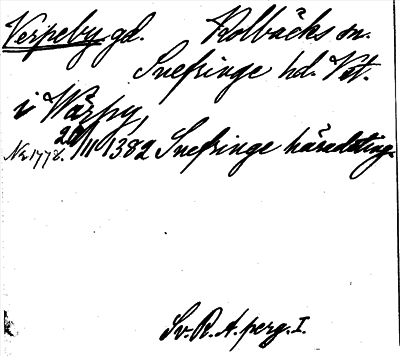 Verpeby gd. Kolbäcks sn.
Snefringe hd. Vst.
i Wärpy,
Nr 1778. 25/11 1382 Snefringe häradsting.
Sv. R. A. perg. I.